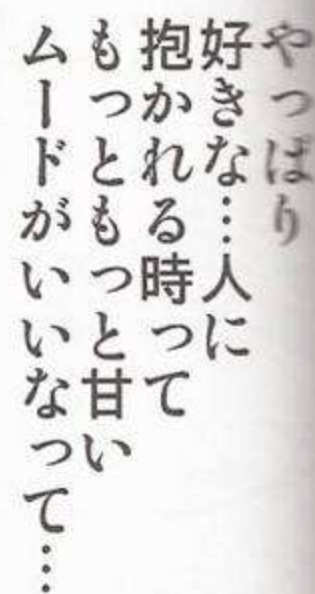 やっぱり
好きな…人に
抱かれる時って
もっともっと甘い
ムードがいいなって…